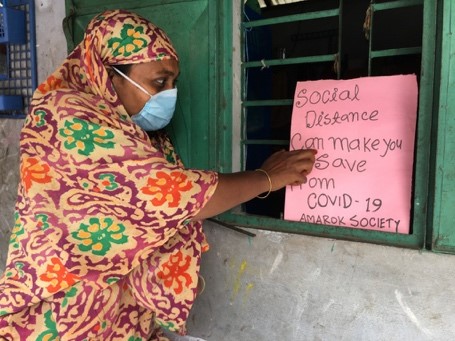 Social
Distance
Can make you
Save
from
COVID-19
AMAROK SOCIETY